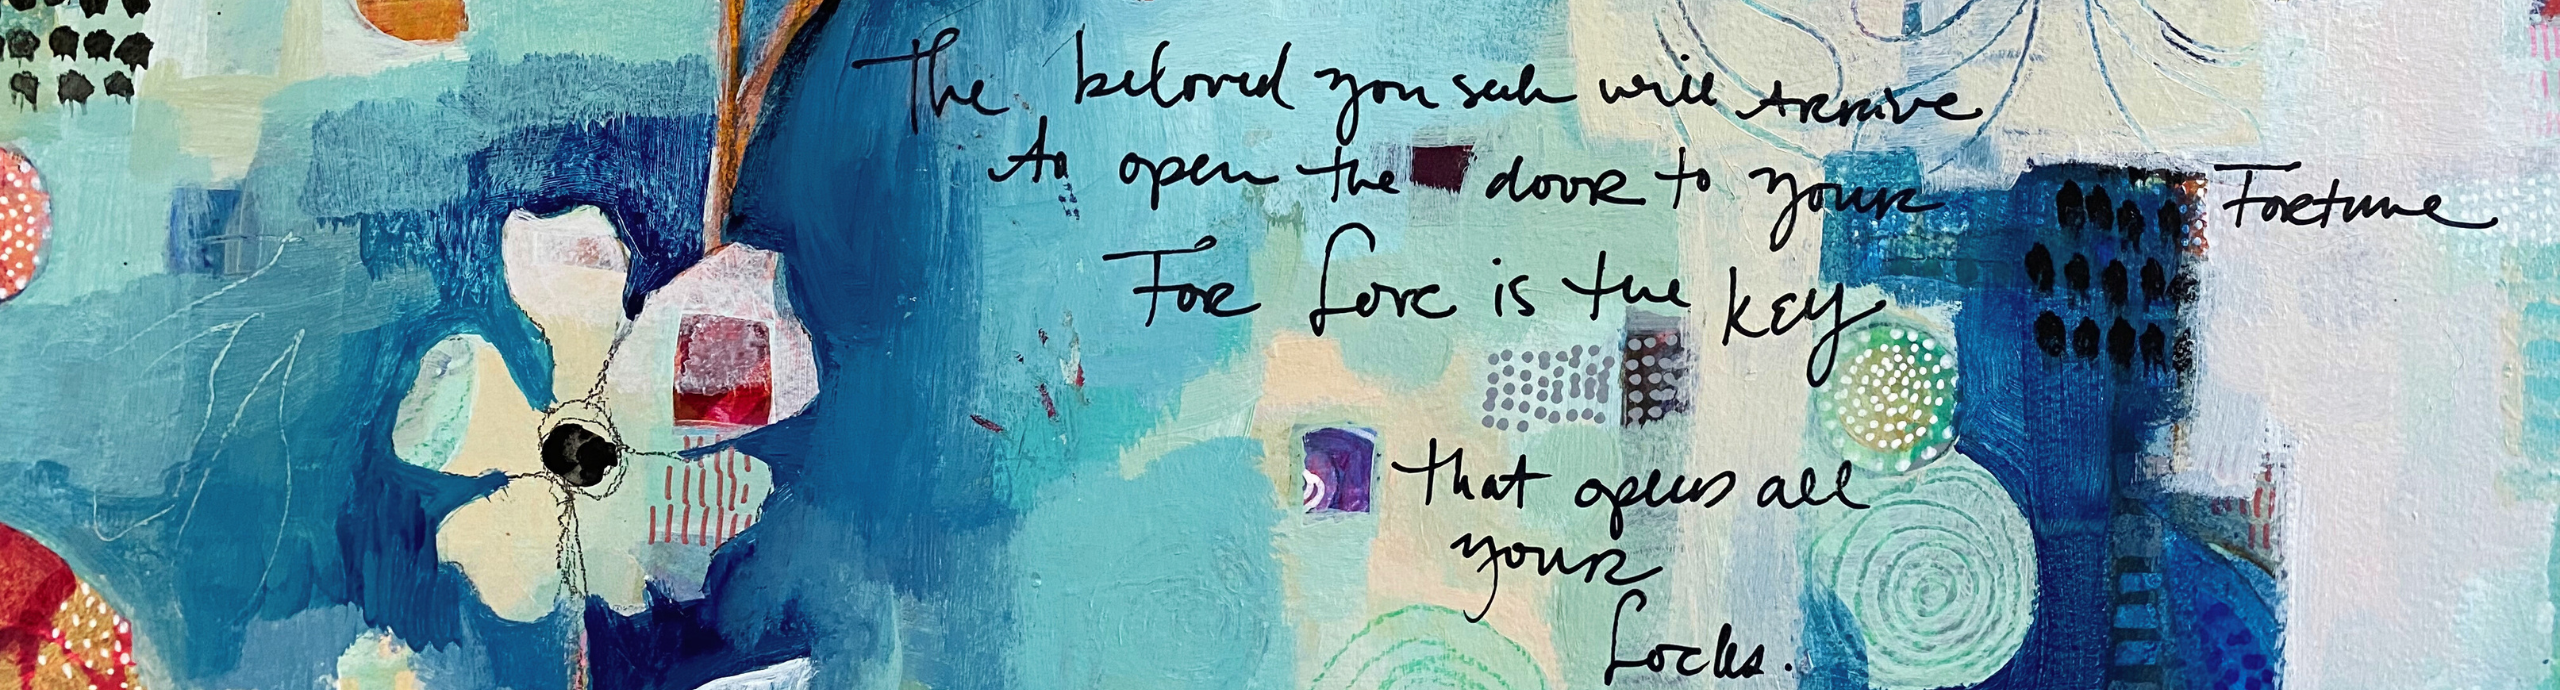 The beloved you seek will ARRive
to open the dooR to youR FoRtune
FoR Love is the KEY
that opens all
youR
Locks.